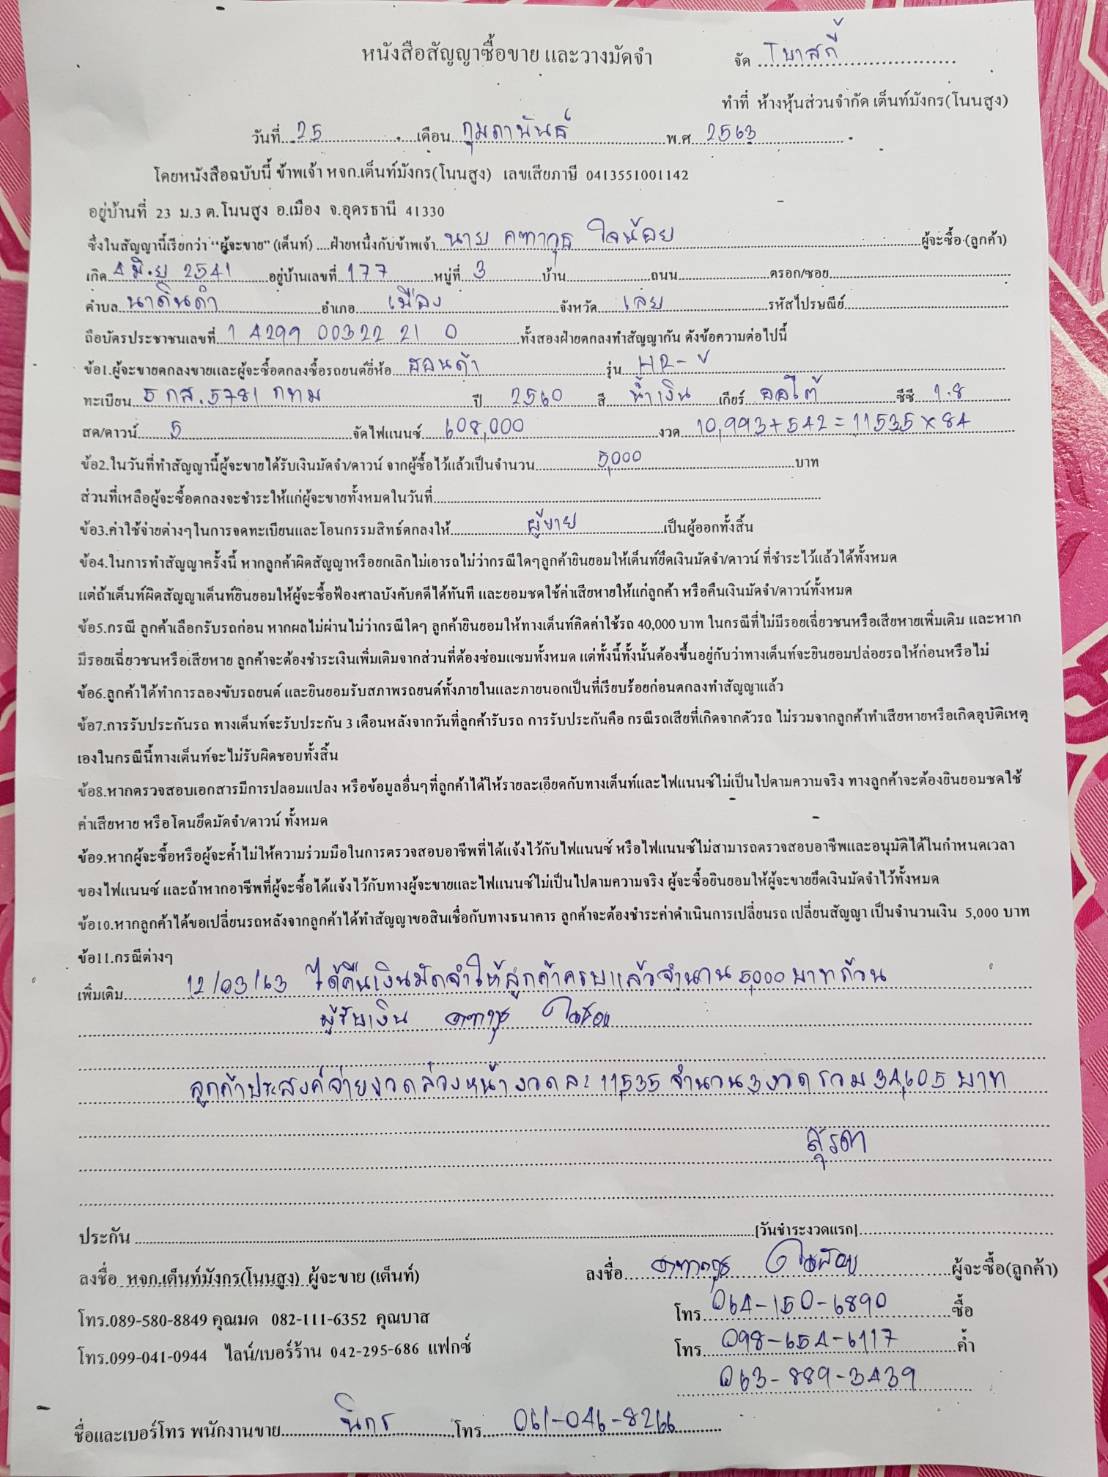 หนังสือสัญญาซื้อขาย และวางมัดจำ
จัด
ทำที่ ห้างหุ้นส่วนจำกัด เต็นท์มังกร(โนนสูง)
วันที่ 25 เดือน กุมภาพันธ์ พ.ศ 2563
โดยหนังสือฉบับนี้ ข้าพเจ้า หจก.เต็นท์มังกร(โนนสูง) เลขเสียภาษี 0413551001142
อยู่บ้านที่ 23 ม.3 ต.โนนสูง อ.เมือง จ.อุดรธานี 41330
ซึ่งในสัญญานี้เรียกว่า "ผู้จะขาย" (เต็นท์) ....ฝ่ายหนึ่งกับข้าพเจ้า นาย คฑาวุธ ใจน้อย ผู้จะซื้อ (ลูกค้า)
เกิด 4 มิ.ย 2541 อยู่บ้านเลขที่ 177 หมู่ที่ 3 บ้าน ถนน ตรอก/ซอย
ตำบล นาดินดำ อำเภอ เมือง จังหวัด เลย รหัสไปรษณีย์
ถือบัตรประชาชนเลขที่ 1 4299 00322 21 0 ทั้งสองฝ่ายตกลงทำสัญญากัน ดังข้อความต่อไปนี้
ข้อ1.ผู้จะขายตกลงขายและผู้จะซื้อตกลงซื้อรถยนต์ยี่ห้อ ฮอนด้า รุ่น HR-V
ทะเบียน 5 กส.5781 กทม ปี 2560 สี น้ำเงิน เกียร์ ออโต้ ซีซี 1.8
สด/ดาวน์ 5 จัดไฟแนนซ์ 608,000 งวด 10,993+542=11535×84
ข้อ2.ในวันที่ทำสัญญานี้ผู้จะขายได้รับเงินมัดจำ/ดาวน์ จากผู้ซื้อไว้แล้วเป็นจำนวน 5,000 บาท
ส่วนที่เหลือผู้จะซื้อตกลงจะชำระให้แก่ผู้จะขายทั้งหมดในวันที่
ข้อ3.ค่าใช้จ่ายต่างๆในการจดทะเบียนและโอนกรรมสิทธ์ตกลงให้ ผู้ขาย เป็นผู้ออกทั้งสิ้น
ข้อ4.ในการทำสัญญาครั้งนี้ หากลูกค้าผิดสัญญาหรือยกเลิกไม่เอารถไม่ว่ากรณีใดๆลูกค้ายินยอมให้เต็นท์ยึดเงินมัดจำ/ดาวน์ ที่ชำระไว้แล้วได้ทั้งหมด
แต่ถ้าเต็นท์ผิดสัญญาเต็นท์ยินยอมให้ผู้จะซื้อฟ้องศาลบังคับคดีได้ทันที และยอมชดใช้ค่าเสียหายให้แก่ลูกค้า หรือคืนเงินมัดจำ/ดาวน์ทั้งหมด
ข้อ5.กรณี ลูกค้าเลือกรับรถก่อน หากผลไม่ผ่านไม่ว่ากรณีใดๆ ลูกค้ายินยอมให้ทางเต็นท์คิดค่าใช้รถ 40,000 บาท ในกรณีที่ไม่มีรอยเฉี่ยวชนหรือเสียหายเพิ่มเติม และหาก
มีรอยเฉี่ยวชนหรือเสียหาย ลูกค้าจะต้องชำระเงินเพิ่มเติมจากส่วนที่ต้องซ่อมแซมทั้งหมด แต่ทั้งนี้ทั้งนั้นต้องขึ้นอยู่กับว่าทางเต็นท์จะยินยอมปล่อยรถให้ก่อนหรือไม่
ข้อ6.ลูกค้าได้ทำการลองขับรถยนต์ และยินยอมรับสภาพรถยนต์ทั้งภายในและภายนอกเป็นที่เรียบร้อยก่อนตกลงทำสัญญาแล้ว
ข้อ7.การรับประกันรถ ทางเต็นท์จะรับประกัน 3 เดือนหลังจากวันที่ลูกค้ารับรถ การรับประกันคือ กรณีรถเสียที่เกิดจากตัวรถ ไม่รวมจากลูกค้าทำเสียหายหรือเกิดอุบัติเหตุ
เองในกรณีนี้ทางเต็นท์จะไม่รับผิดชอบทั้งสิ้น
ข้อ8.หากตรวจสอบเอกสารมีการปลอมแปลง หรือข้อมูลอื่นๆที่ลูกค้าได้ให้รายละเอียดกับทางเต็นท์และไฟแนนซ์ไม่เป็นไปตามความจริง ทางลูกค้าจะต้องยินยอมชดใช้
ค่าเสียหาย หรือโดนยึดมัดจำ/ดาวน์ ทั้งหมด
ข้อ9.หากผู้จะซื้อหรือผู้จะค้ำไม่ให้ความร่วมมือในการตรวจสอบอาชีพที่ได้แจ้งไว้กับไฟแนนซ์ หรือไฟแนนซ์ไม่สามารถตรวจสอบอาชีพและอนุมัติได้ในกำหนดเวลา
ของไฟแนนซ์ และถ้าหากอาชีพที่ผู้จะซื้อได้แจ้งไว้กับทางผู้จะขายและไฟแนนซ์ไม่เป็นไปตามความจริง ผู้จะซื้อยินยอมให้ผู้จะขายยึดเงินมัดจำไว้ทั้งหมด
ข้อ10.หากลูกค้าได้ขอเปลี่ยนรถหลังจากลูกค้าได้ทำสัญญาขอสินเชื่อกับทางธนาคาร ลูกค้าจะต้องชำระค่าดำเนินการเปลี่ยนรถ เปลี่ยนสัญญา เป็นจำนวนเงิน 5,000 บาท
ข้อ11.กรณีต่างๆ
เพิ่มเติม 12/03/63 ได้คืนเงินมัดจำให้ลูกค้าครบแล้วจำนวน 5,000 บาทถ้วน
ผู้รับเงิน คฑาวุธ ใจน้อย
ลูกค้าประสงค์จ่ายงวดล่วงหน้างวดละ 11,535 จำนวน 3 งวด รวม 34,605 บาท
สุรดา
ประกัน [วันชำระงวดแรก]
ลงชื่อ หจก.เต็นท์มังกร(โนนสูง) ผู้จะขาย (เต็นท์) ลงชื่อ คฑาวุธ ใจน้อย ผู้จะซื้อ(ลูกค้า)
โทร.089-580-8849 คุณมด 082-111-6352 คุณบาส โทร 064-150-6890 ซื้อ
โทร.099-041-0944 ไลน์/เบอร์ร้าน 042-295-686 แฟกซ์ โทร 098-654-6117 ค้ำ
063-889-3439
ชื่อและเบอร์โทร พนักงานขาย นิกร โทร 061-046-8266